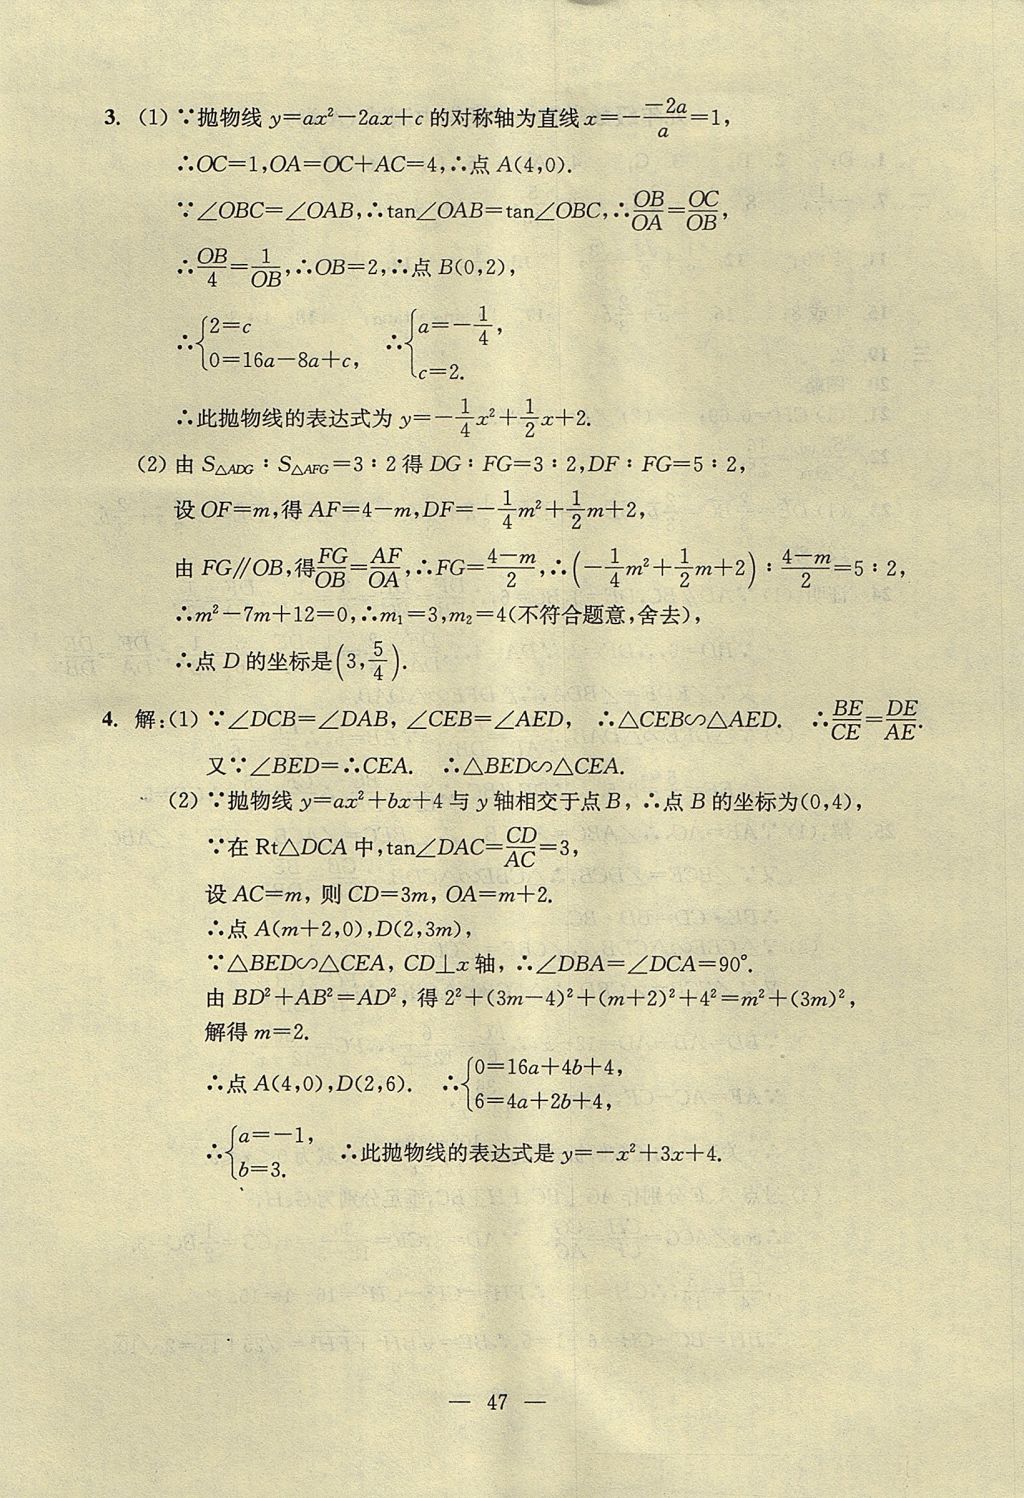 3. (1) ∵抛物线 y=ax²−2ax+c 的对称轴为直线 x=−\frac{−2a}{a}=1,
∴OC=1,OA=OC+AC=4,∴点 A(4,0).
∵∠OBC=∠OAB,∴tan∠OAB=tan∠OBC,∴\frac{OB}{OA}=\frac{OC}{OB},
∴\frac{OB}{4}=\frac{1}{OB},∴OB=2,∴点 B(0,2),
∴{2=c 0=16a−8a+c, ∴{a=−\frac{1}{4}, c=2.
∴此抛物线的表达式为 y=−\frac{1}{4}x²+\frac{1}{2}x+2.
(2) 由 S△ADG∶S△AFG=3∶2得 DG∶FG=3∶2,DF∶FG=5∶2,
设 OF=m,得 AF=4−m,DF=−\frac{1}{4}m²+\frac{1}{2}m+2,
由 FG∥OB,得\frac{FG}{OB}=\frac{AF}{OA},∴FG=\frac{4−m}{2},∴(−\frac{1}{4}m²+\frac{1}{2}m+2)∶\frac{4−m}{2}=5∶2,
∴m²−7m+12=0,∴m₁=3,m₂=4(不符合题意,舍去),
∴点 D 的坐标是(3,\frac{5}{4}).
4. 解:(1) ∵∠DCB=∠DAB, ∠CEB=∠AED, ∴△CEB∽△AED. ∴\frac{BE}{CE}=\frac{DE}{AE}.
又∵∠BED=∴CEA. ∴△BED∽△CEA.
(2) ∵抛物线 y=ax²+bx+4 与 y 轴相交于点 B, ∴点 B 的坐标为(0,4),
∵在 Rt△DCA 中,tan∠DAC=\frac{CD}{AC}=3,
设 AC=m, 则 CD=3m, OA=m+2.
∴点 A(m+2,0),D(2,3m),
∵△BED∽△CEA, CD⊥x 轴, ∴∠DBA=∠DCA=90°.
由 BD²+AB²=AD², 得 2²+(3m−4)²+(m+2)²+4²=m²+(3m)²,
解得 m=2.
∴点 A(4,0),D(2,6). ∴{0=16a+4b+4, 6=4a+2b+4,
∴{a=−1, b=3. ∴此抛物线的表达式是 y=−x²+3x+4.
— 47 —